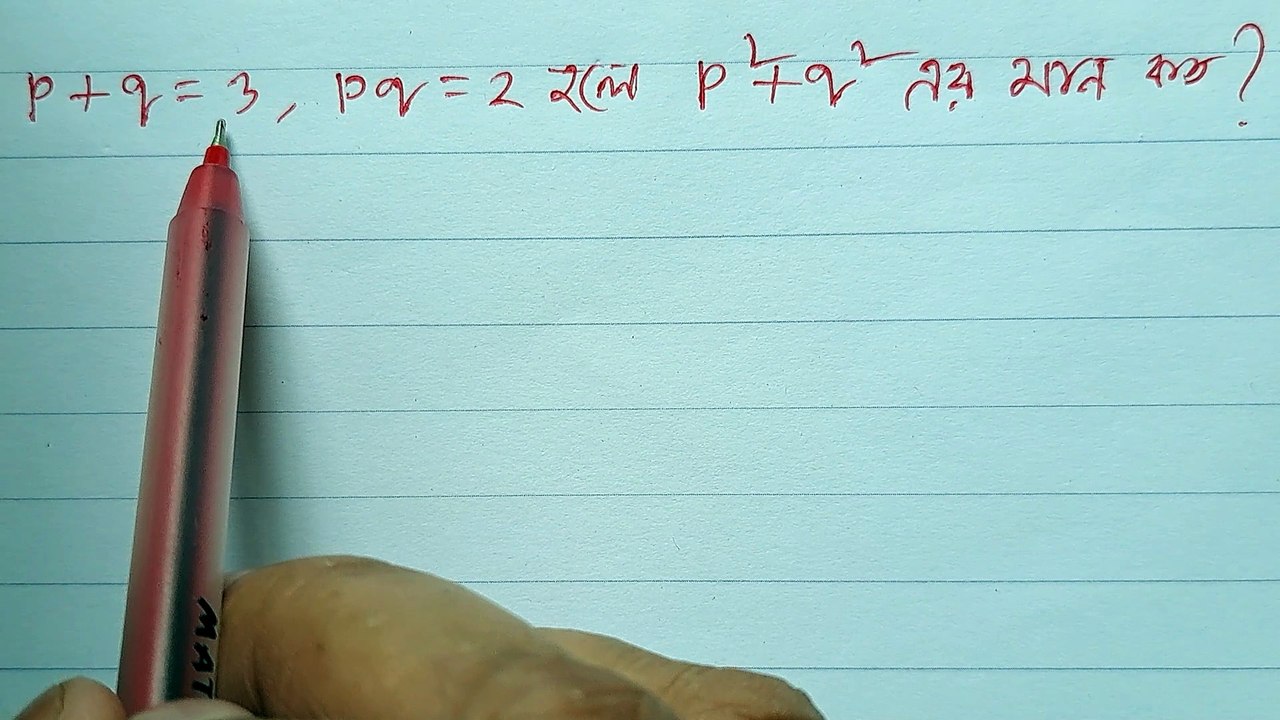 p + q = 3, pq = 2 হলে p² + q² এর মান কত?
MAT